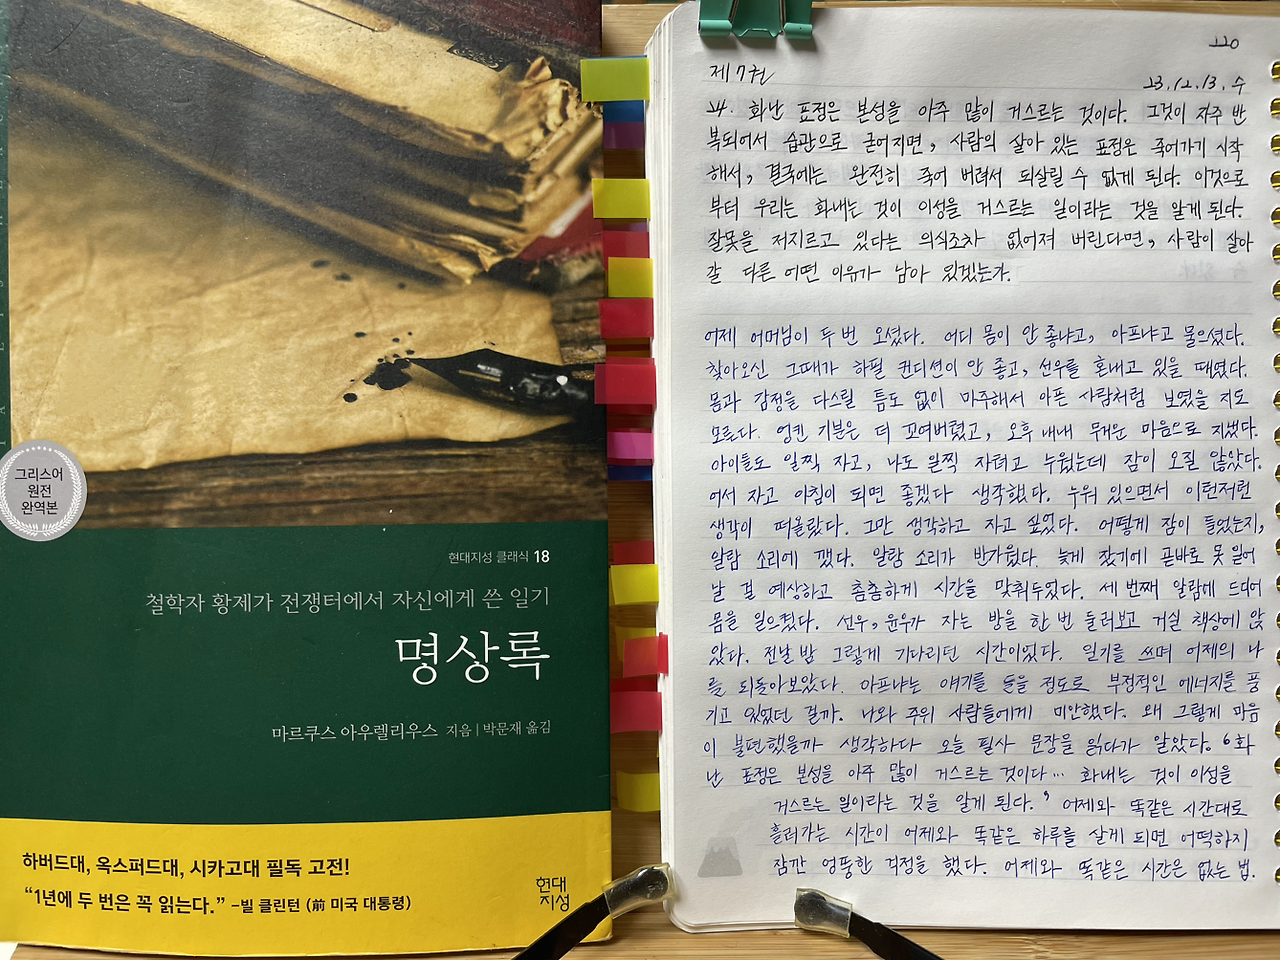 그리스어
원전
완역본
현대지성 클래식 18
철학자 황제가 전쟁터에서 자신에게 쓴 일기
명상록
마르쿠스 아우렐리우스 지음 | 박문재 옮김
하버드대, 옥스퍼드대, 시카고대 필독 고전!
“1년에 두 번은 꼭 읽는다.” –빌 클린턴 (前 미국 대통령)
현대
지성
220
제7권
23.12.13. 수
24. 화난 표정은 본성을 아주 많이 거스르는 것이다. 그것이 자주 반
복되어서 습관으로 굳어지면, 사람의 살아 있는 표정은 죽어가기 시작
해서, 결국에는 완전히 죽어 버려서 되살릴 수 없게 된다. 이것으로
부터 우리는 화내는 것이 이성을 거스르는 일이라는 것을 알게 된다.
잘못을 저지르고 있다는 의식조차 없어져 버린다면, 사람이 살아
갈 다른 어떤 이유가 남아 있겠는가.
어제 어머님이 두 번 오셨다. 어디 몸이 안 좋냐고, 아프냐고 물으셨다.
찾아오신 그때가 하필 컨디션이 안 좋고, 선우를 혼내고 있을 때였다.
몸과 감정을 다스릴 틈도 없이 마주해서 아픈 사람처럼 보였을 지도
모르다. 엉킨 기분은 더 꼬여버렸고, 오후 내내 무거운 마음으로 지냈다.
아이들도 일찍 자고, 나도 일찍 자려고 누웠는데 잠이 오질 않았다.
어서 자고 아침이 되면 좋겠다 생각했다. 누워 있으면서 이런저런
생각이 떠올랐다. 그만 생각하고 자고 싶었다. 어떻게 잠이 들었는지,
알람 소리에 깼다. 알람 소리가 반가웠다. 늦게 잤기에 곧바로 못 일어
날 걸 예상하고 촘촘하게 시간을 맞춰두었다. 세 번째 알람에 드디어
몸을 일으켰다. 선우, 윤우가 자는 방을 한 번 둘러보고 거실 책상에 앉
았다. 전날 밤 그렇게 기다리던 시간이었다. 일기를 쓰며 어제의 나
를 되돌아보았다. 아프냐는 얘기를 들을 정도로 부정적인 에너지를 풍
기고 있었던 걸까. 나와 주위 사람들에게 미안했다. 왜 그렇게 마음
이 불편했을까 생각하다 오늘 필사 문장을 읽다가 알았다. ‘화
난 표정은 본성을 아주 많이 거스르는 것이다… 화내는 것이 이성을
거스르는 일이라는 것을 알게 된다.’ 어제와 똑같은 시간대로
흘러가는 시간이 어제와 똑같은 하루를 살게 되면 어떡하지
잠깐 엉뚱한 걱정을 했다. 어제와 똑같은 시간은 없는 법.